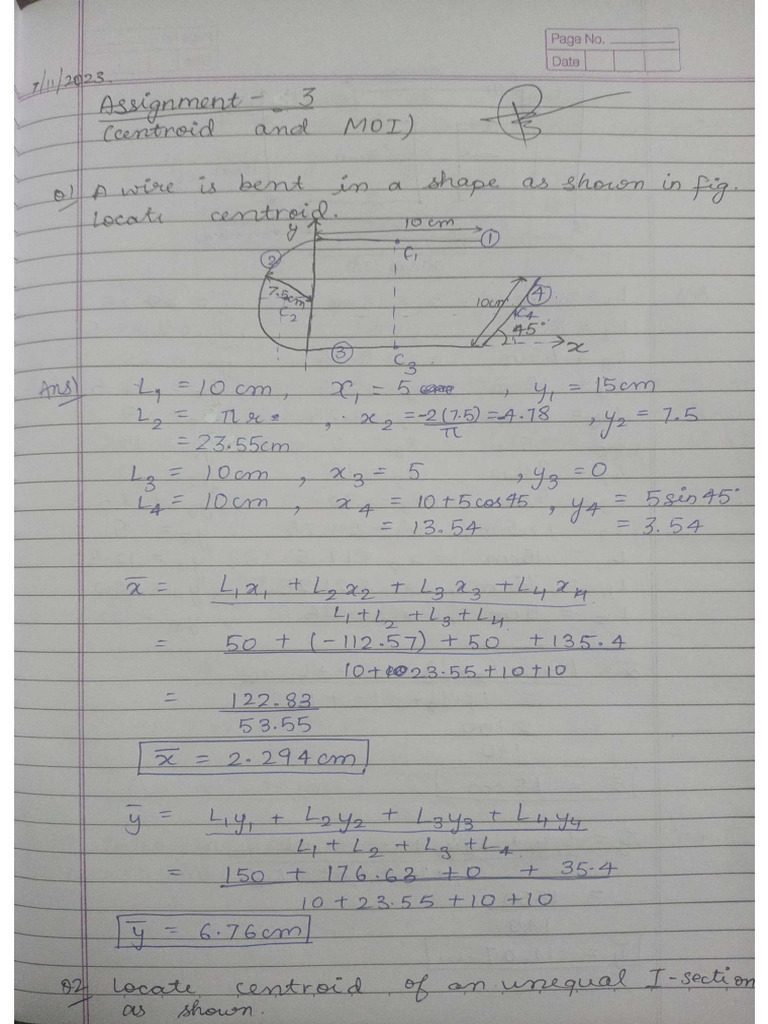 Page No.
Date
7/11/2023.
Assignment - 3
(centroid and MOI)
Q1 A wire is bent in a shape as shown in fig.
Locate centroid.
10cm
y
1
2
C1
7.5cm
C2
10cm
4
C4
45°
3
C3
x
Ans) L1 = 10 cm, x1 = 5 , y1 = 15cm
L2 = πr , x2 = -2(7.5)/π = -4.78 , y2 = 7.5
= 23.55cm
L3 = 10cm , x3 = 5 , y3 = 0
L4 = 10cm, x4 = 10+5cos45, y4 = 5sin45°
= 13.54 = 3.54
x̄ = L1x1 + L2x2 + L3x3 + L4x4
L1+L2+L3+L4
= 50 + (-112.57) + 50 + 135.4
10+23.55+10+10
= 122.83
53.55
x̄ = 2.294cm
ȳ = L1y1 + L2y2 + L3y3 + L4y4
L1+L2+L3+L4
= 150 + 176.63 +0 + 35.4
10+23.55+10+10
ȳ = 6.76cm
Q2 Locate centroid of an unequal I-section
as shown.